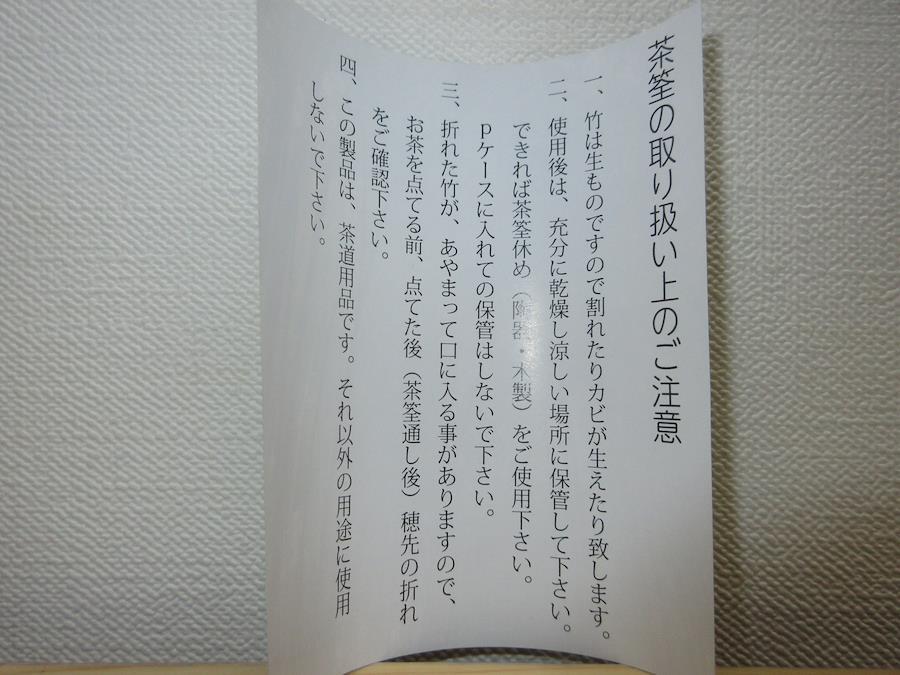 茶筌の取り扱い上のご注意
一、竹は生ものですので割れたりカビが生えたり致します。
二、使用後は、充分に乾燥し涼しい場所に保管して下さい。
できれば茶筌休め（陶器・木製）をご使用下さい。
pケースに入れての保管はしないで下さい。
三、折れた竹が、あやまって口に入る事がありますので、
お茶を点てる前、点てた後（茶筌通し後）穂先の折れ
をご確認下さい。
四、この製品は、茶道用品です。それ以外の用途に使用
しないで下さい。